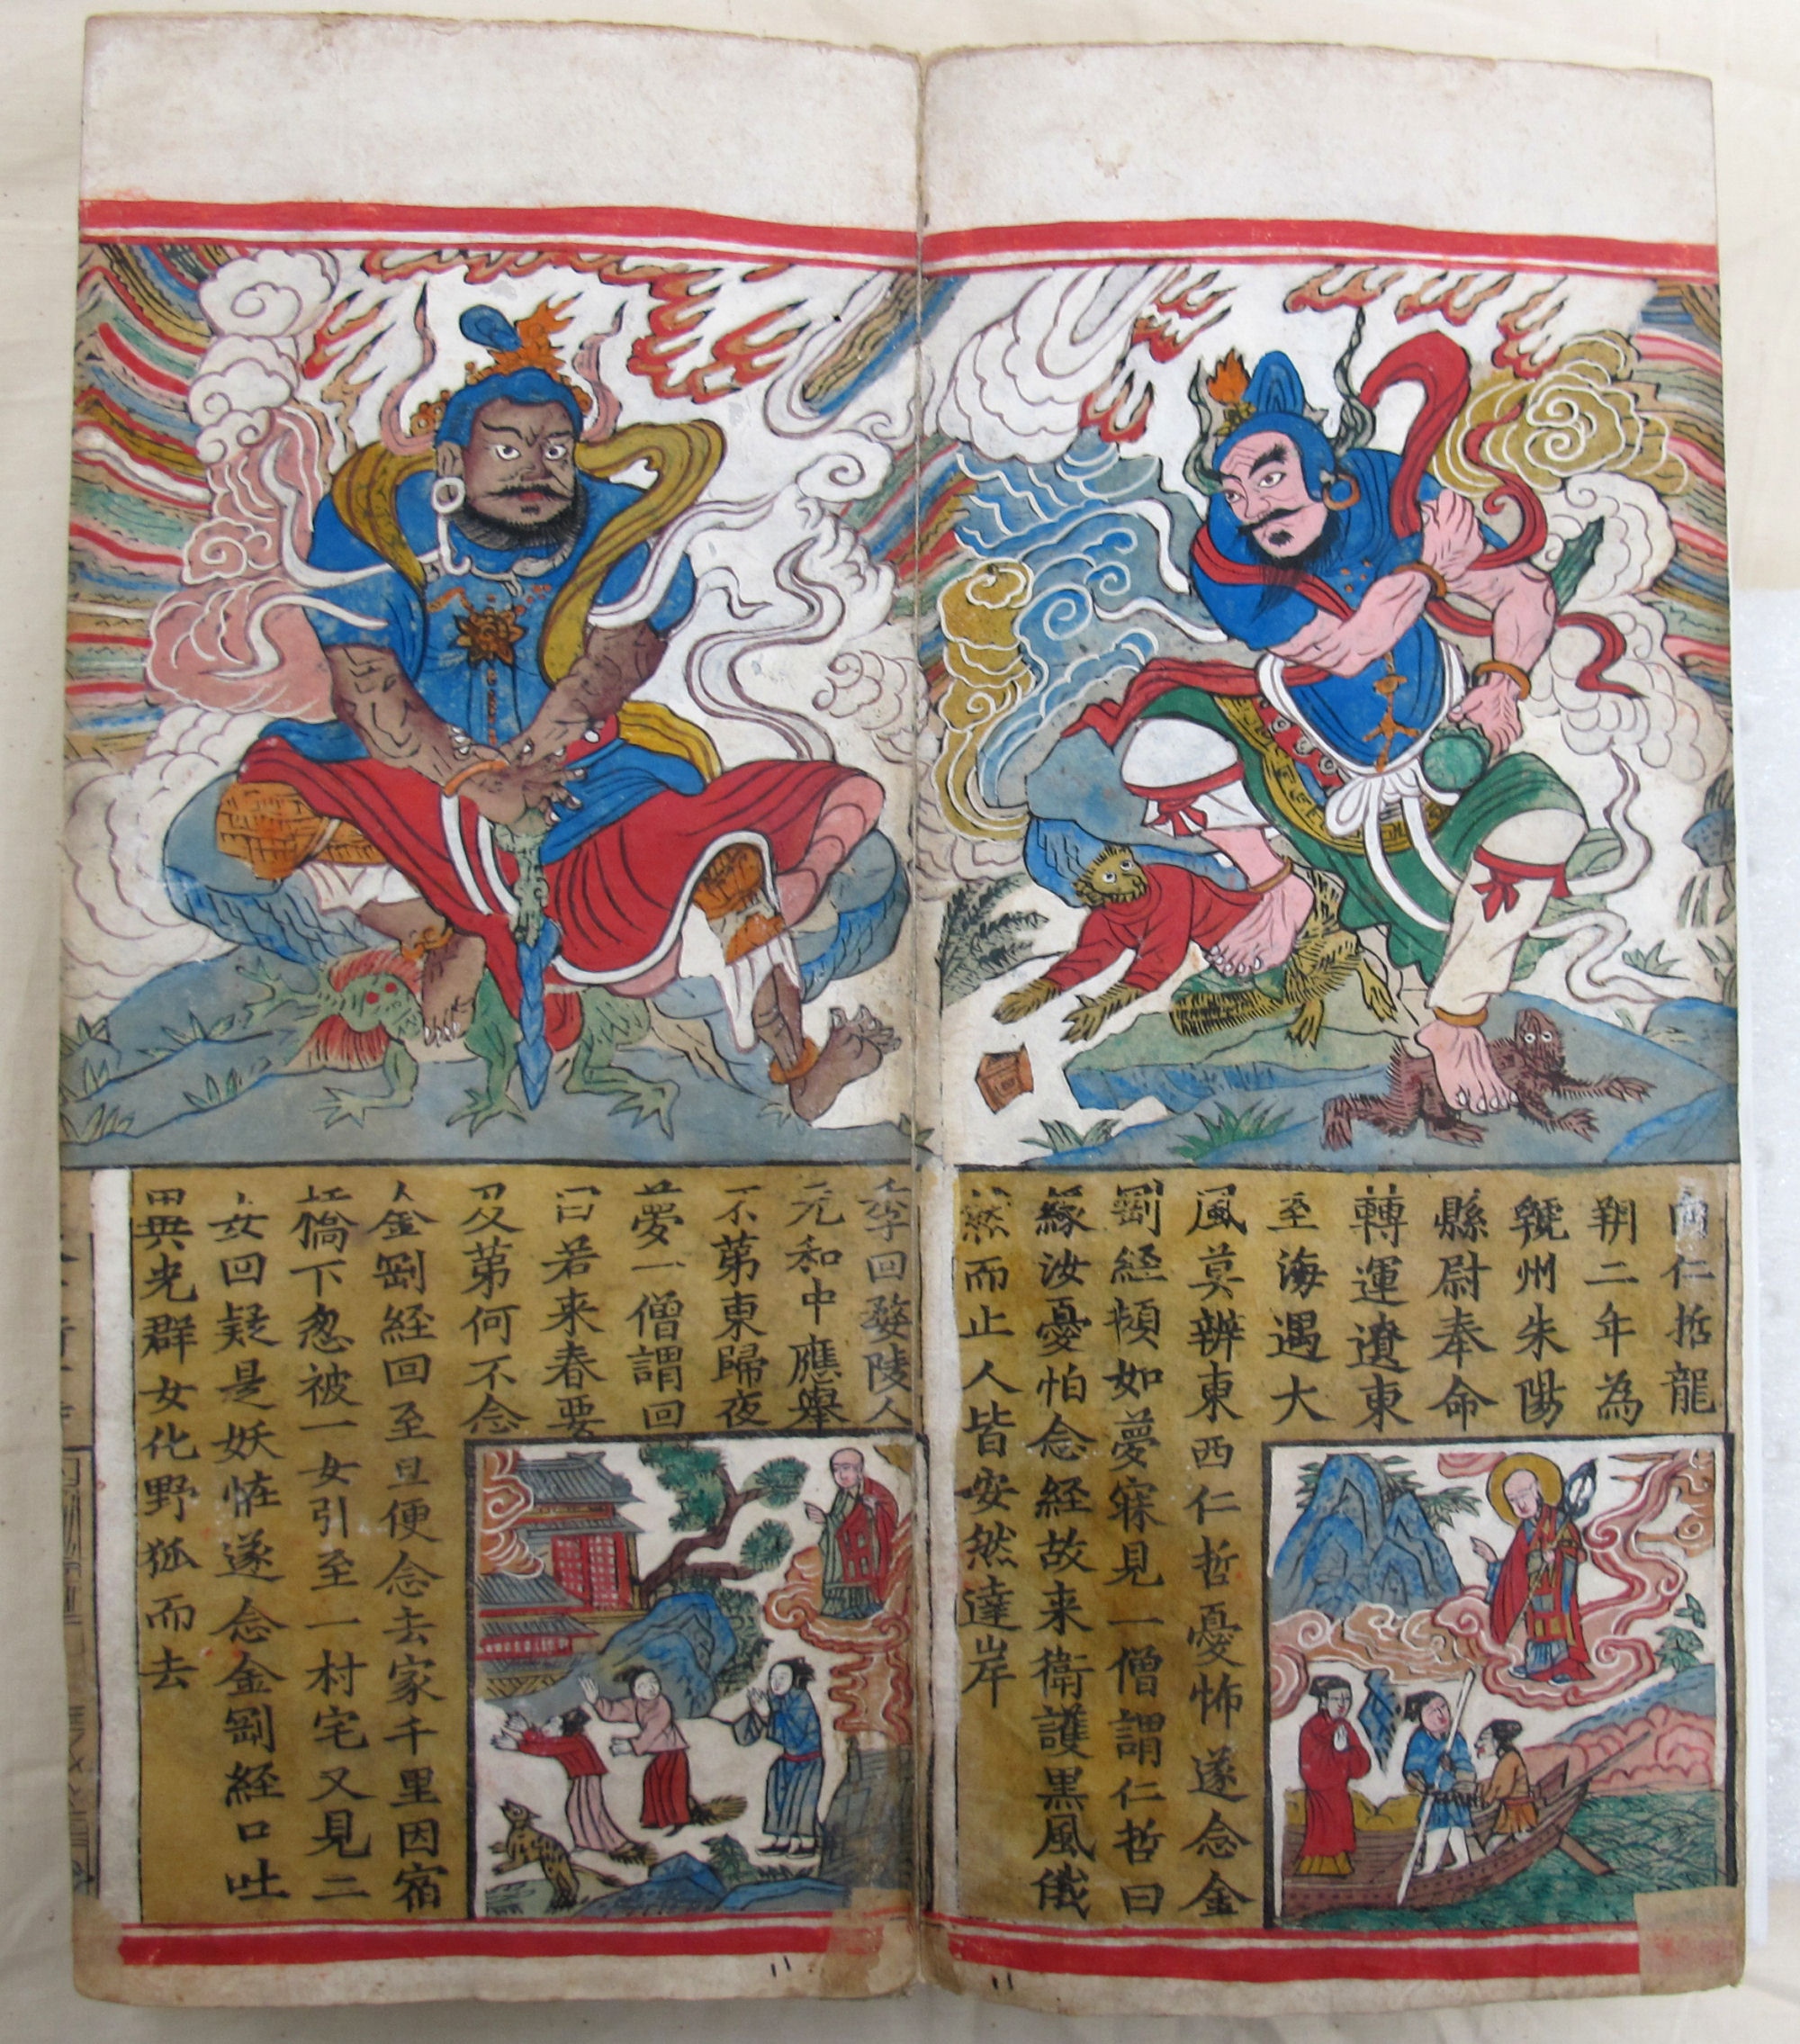 商仁哲龍
朔二年為
虢州朱陽
縣尉奉命
轉運遼東
至海遇大
風莫辨東西仁哲憂怖遂念金
剛経頻如夢寐見一僧謂仁哲曰
緣汝憂怕念経故来衛護黒風俄
然而止人皆安然達岸
李回婺陵人
元和中應舉
不第東歸夜
夢一僧謂回
曰若来春要
及第何不念
金剛経回至旦便念去家千里因宿
橋下忽被一女引至一村宅又見二
女回疑是妖恠遂念金剛経口吐
異光群女化野狐而去